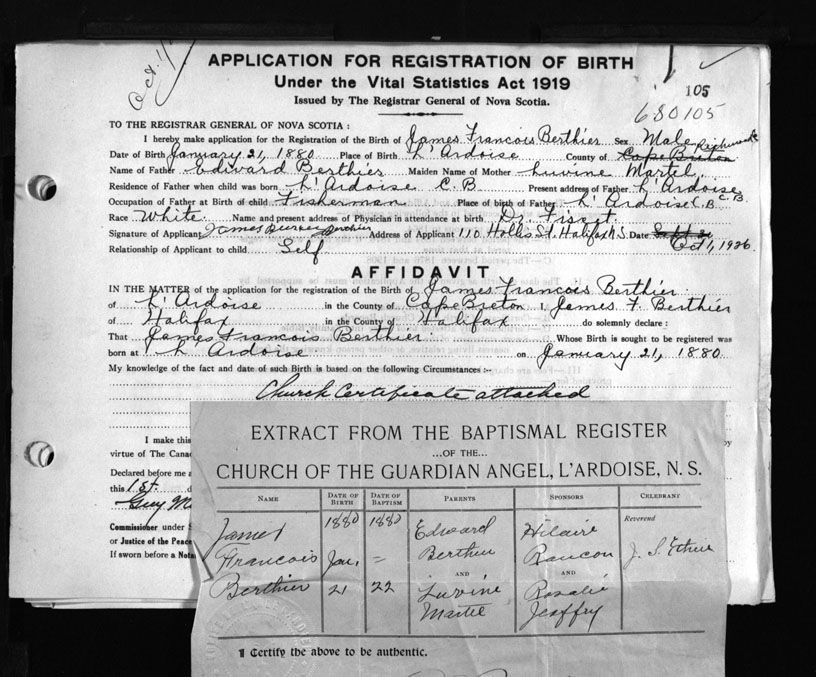 Oct. 1/
APPLICATION FOR REGISTRATION OF BIRTH
Under the Vital Statistics Act 1919
Issued by The Registrar General of Nova Scotia.
105
680105
TO THE REGISTRAR GENERAL OF NOVA SCOTIA :
I hereby make application for the Registration of the Birth of James Francois Berthier Sex Male
Richmond
Date of Birth January 21, 1880 Place of Birth L' Ardoise County of Cape Breton
Name of Father Edward Berthier Maiden Name of Mother Luvine Martel
Residence of Father when child was born L' Ardoise C. B. Present address of Father L' Ardoise C. B.
Occupation of Father at Birth of child Fisherman Place of birth of Father L' Ardoise C. B.
Race White Name and present address of Physician in attendance at birth Dr. Fiset
Signature of Applicant James Berthier Address of Applicant 110 Hollis St. Halifax N.S. Date Oct 1, 1926
Relationship of Applicant to child Self
AFFIDAVIT
IN THE MATTER of the application for the registration of the Birth of James Francois Berthier
of L' Ardoise in the County of Cape Breton I, James F Berthier
of Halifax in the County of Halifax do solemnly declare :
That James Francois Berthier Whose Birth is sought to be registered was
born at L' Ardoise on January 21, 1880.
My knowledge of the fact and date of such Birth is based on the following Circumstances :-
Church Certificate attached
I make this
by
virtue of The Cana
Declared before me a
this 1st. d
Guy M
Commissioner under S
or Justice of the Peace
If sworn before a Nota
EXTRACT FROM THE BAPTISMAL REGISTER
...OF THE...
CHURCH OF THE GUARDIAN ANGEL, L'ARDOISE, N. S.
NAME DATE OF BIRTH DATE OF BAPTISM PARENTS SPONSORS CELEBRANT
James 1880 1880 Edward Hilaire Reverend
Francois Jan. = Berthier Rancon J. S.
AND AND
Berthier 21 22 Luvine Rosalie
Martel Jeoffry
I Certify the above to be authentic.